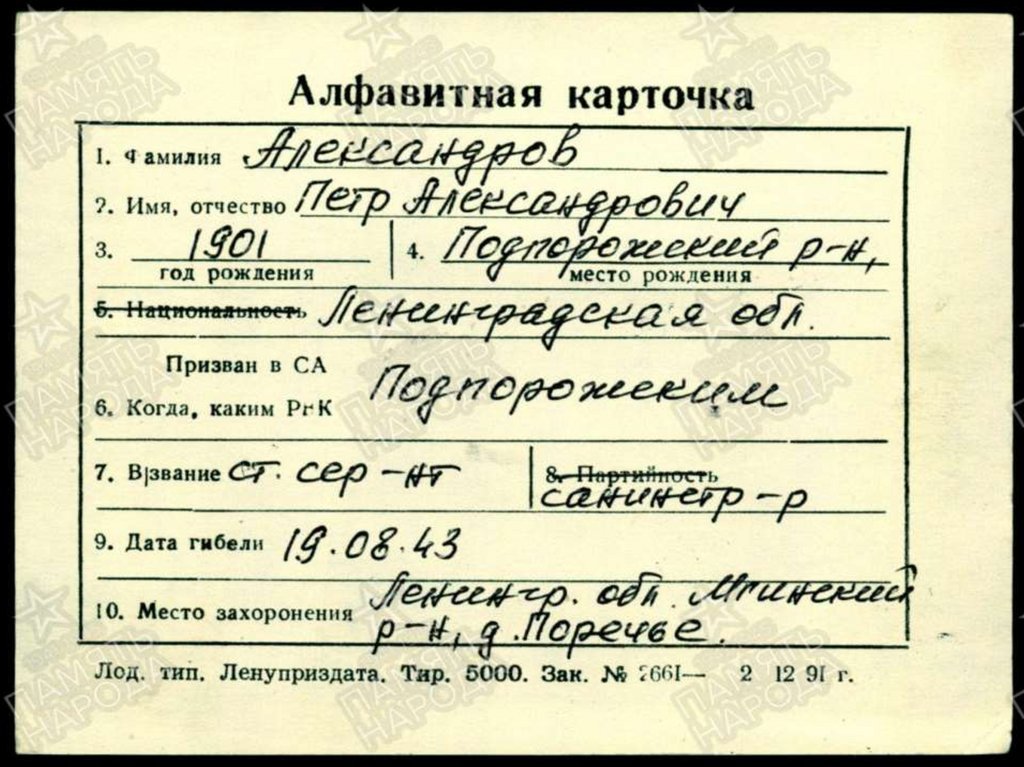 Алфавитная карточка
1. Фамилия Александров
2. Имя, отчество Петр Александрович
3. 1901 4. Подпорожский р-н,
год рождения место рождения
5. Национальность Ленинградская обл.
Призван в СА
6. Когда, каким РвК Подпорожским
7. В/звание ст. сер-нт 8. Партийность
санинстр-р
9. Дата гибели 19.08.43
Ленингр. обл. Мгинский
10. Место захоронения р-н, д. Поречье.
Лод. тип. Ленуприздата. Тир. 5000. Зак. № 2661— 2 12 91 г.
ПАМЯТЬ НАРОДА